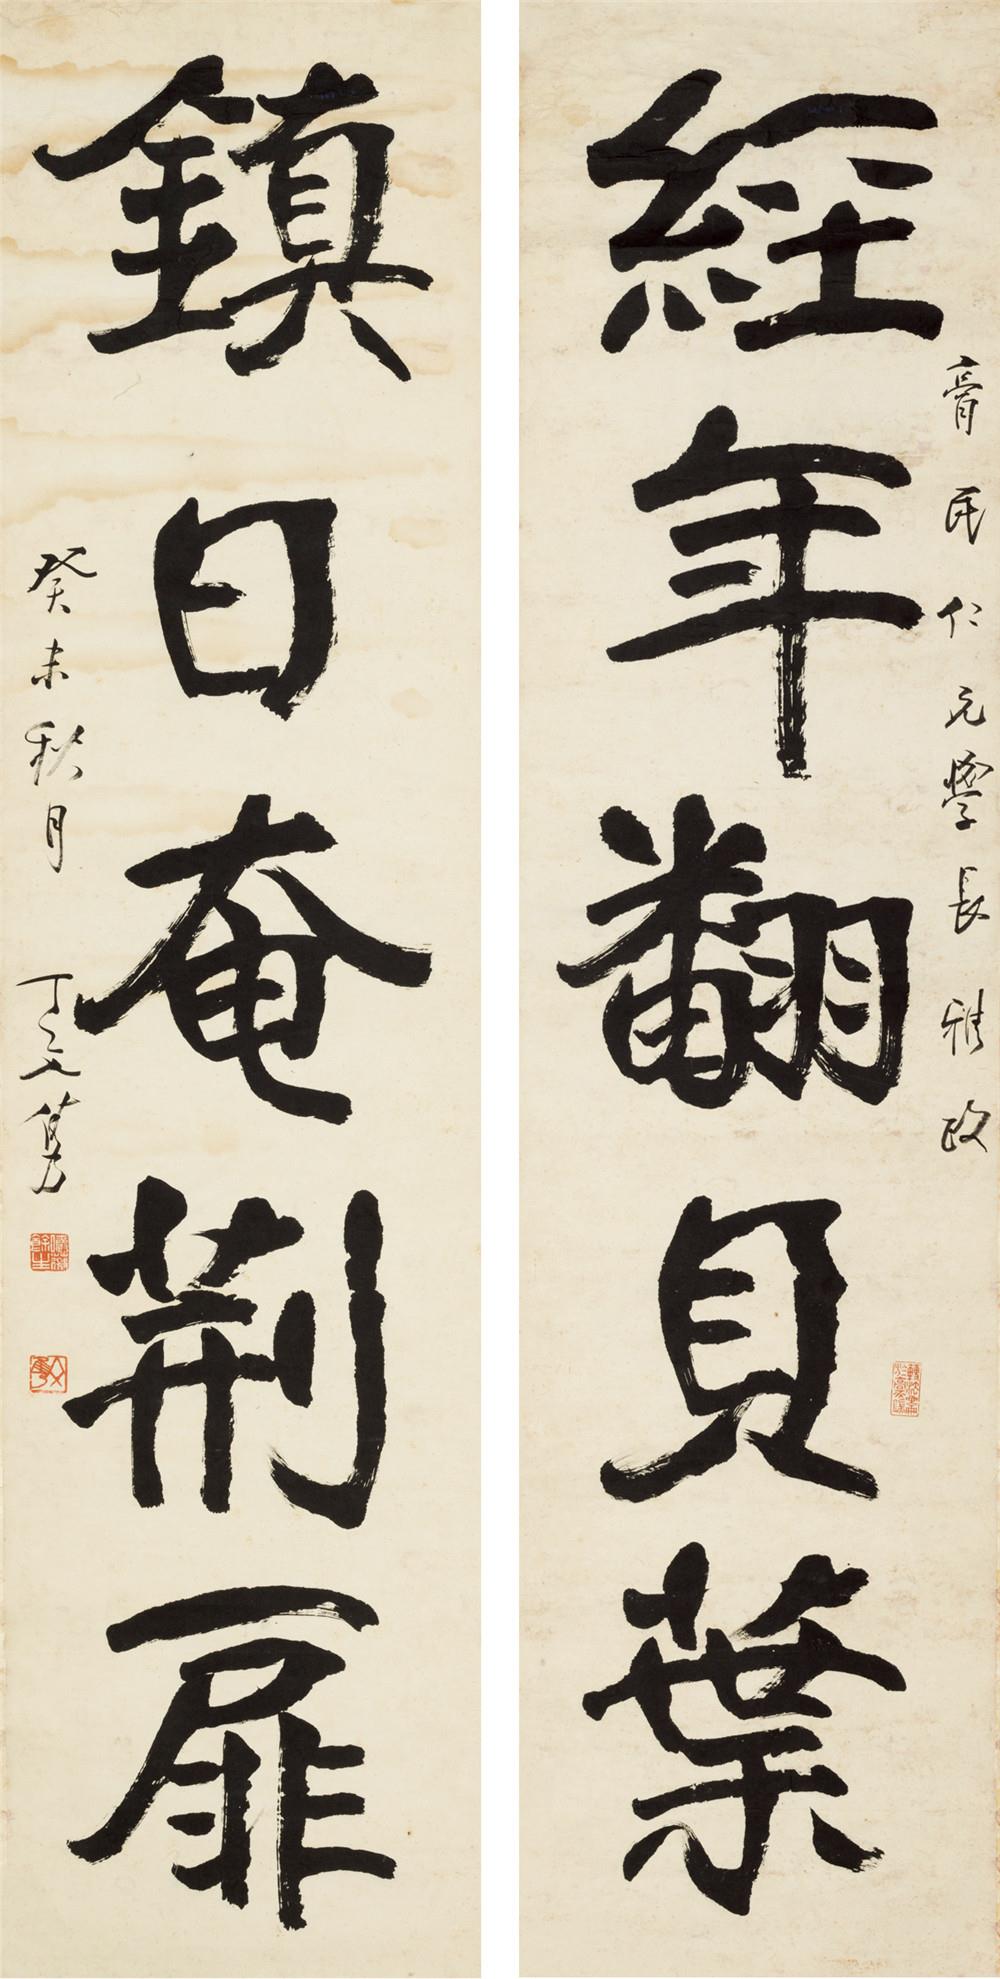 經年翻貝葉
膏民仁兄學長雅政
鎮日奄荊扉
癸未秋月 丁文雋
文雋